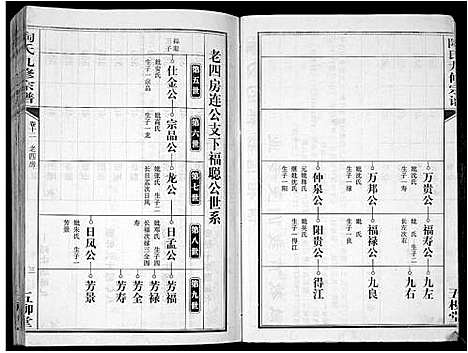 陶氏九修宗谱
卷十二 老四房
五柳堂
老四房连公支下福聪公世系
第五世
第六世
第七世
第八世
第九世
福聪三子
仕金公
妣安氏
生子一宗品
宗品公
妣高氏
生子一龙
龙公
妣张氏 生子二
长日孟次日凤
日孟公
妣邓氏 生子四
长芳福次禄三全四
寿
芳福
芳禄
芳全
芳寿
日凤公
妣朱氏 生子一
芳景
芳景
陶氏九修宗谱
五柳堂
万贵公
妣沈氏
生子一福寿
福寿公
生子二
长左次右
九左
九右
万邦公
妣沈氏
生子一福禄
福禄公
生子一良
九良
仲泉公
元妣韩氏
继妣沈氏
生子一阳贵
阳贵公
妣英氏
生子一得江
得江